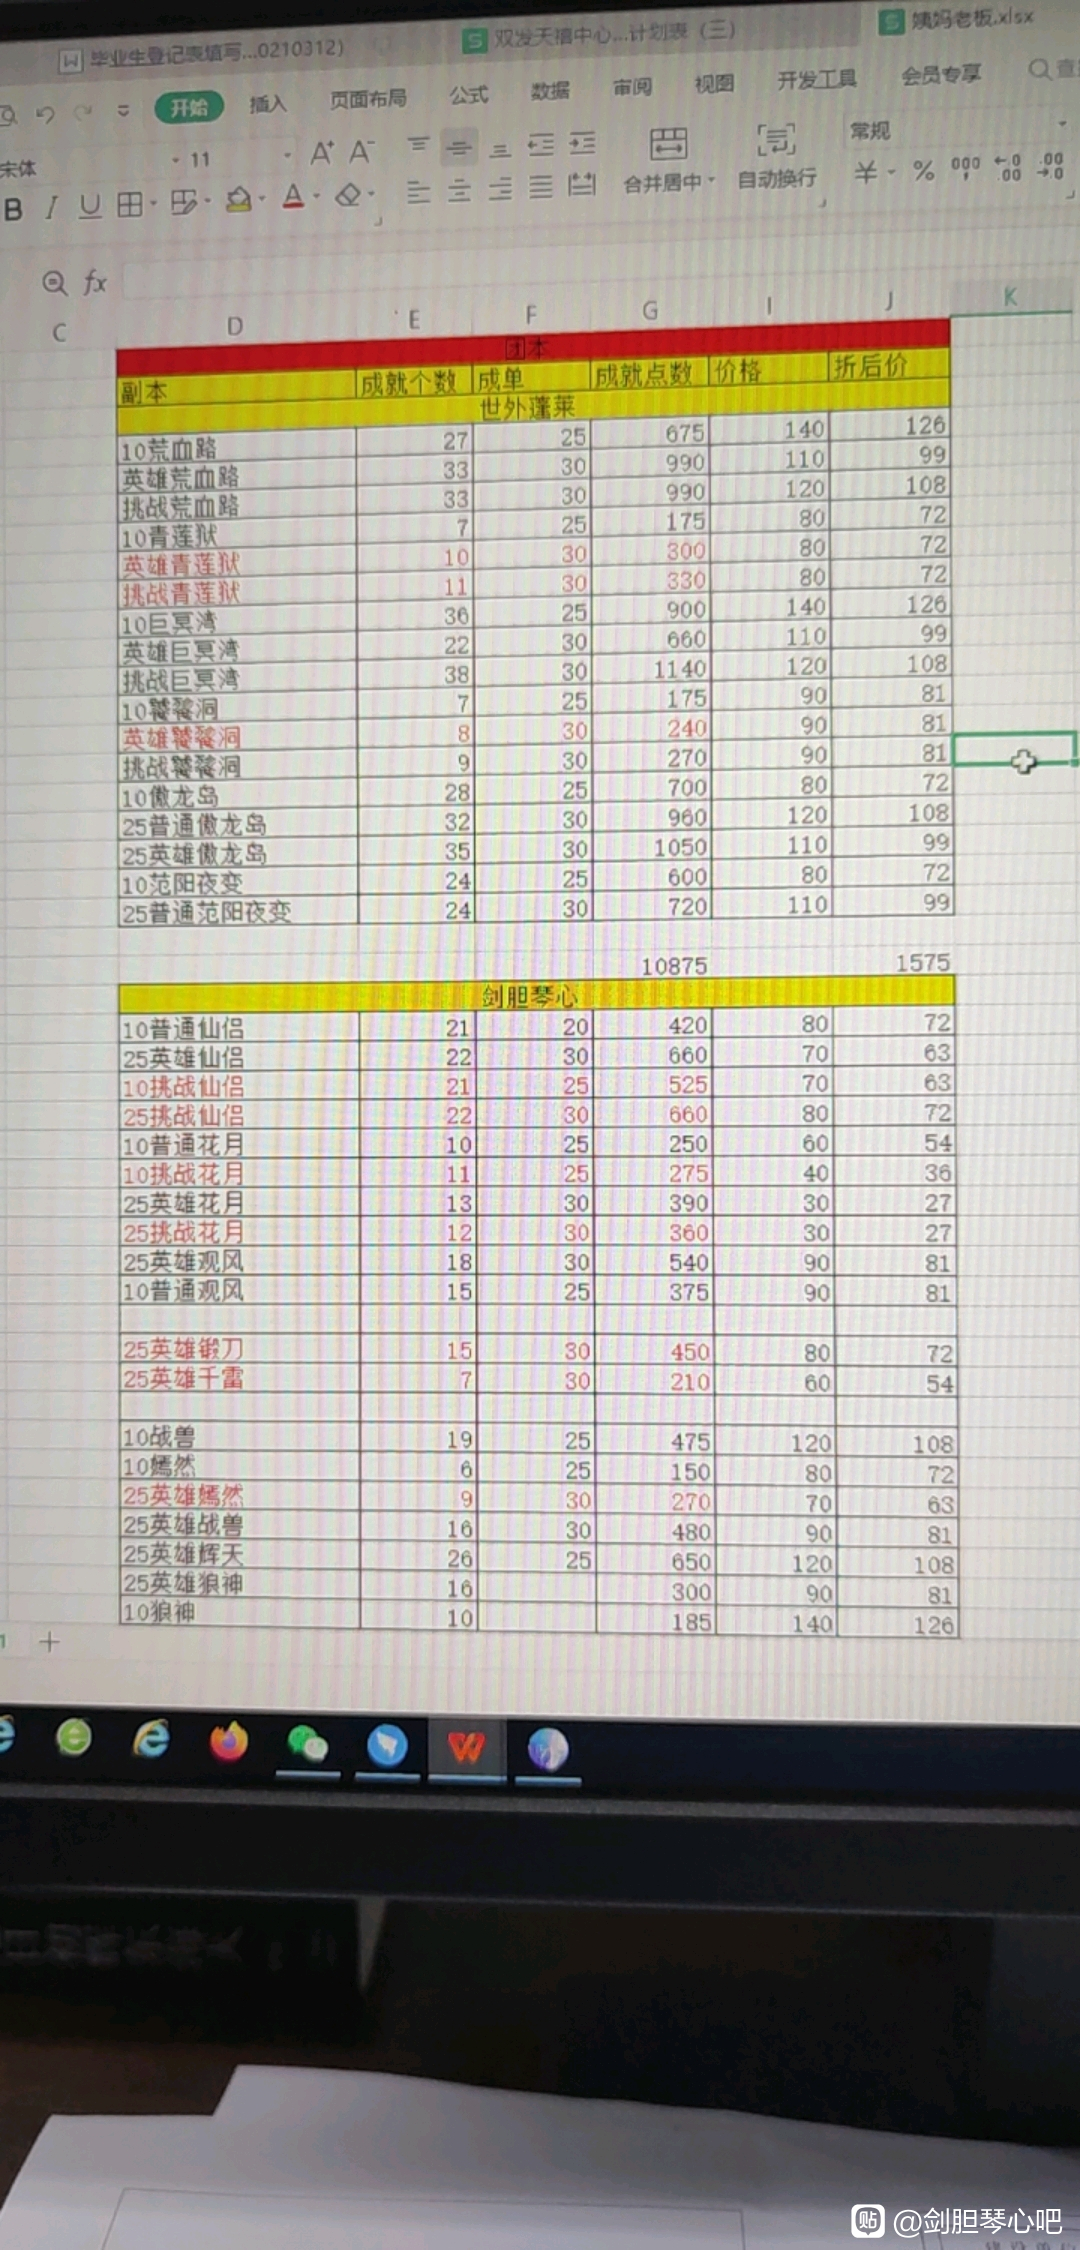 毕业生登记表填写...0210312）
双发天禧中心...计划表（三）
姨妈老板.xlsx
开始 插入 页面布局 公式 数据 审阅 视图 开发工具 会员专享
宋体 11 A+ A- 常规
B I U A 合并居中 自动换行 ¥ % 000 ←.0 .00 .00 →.0
fx
C D E F G I J K
团本
副本 成就个数 成单 成就点数 价格 折后价
世外蓬莱
10荒血路 27 25 675 140 126
英雄荒血路 33 30 990 110 99
挑战荒血路 33 30 990 120 108
10青莲狱 7 25 175 80 72
英雄青莲狱 10 30 300 80 72
挑战青莲狱 11 30 330 80 72
10巨冥湾 36 25 900 140 126
英雄巨冥湾 22 30 660 110 99
挑战巨冥湾 38 30 1140 120 108
10饕餮洞 7 25 175 90 81
英雄饕餮洞 8 30 240 90 81
挑战饕餮洞 9 30 270 90 81
10傲龙岛 28 25 700 80 72
25普通傲龙岛 32 30 960 120 108
25英雄傲龙岛 35 30 1050 110 99
10范阳夜变 24 25 600 80 72
25普通范阳夜变 24 30 720 110 99
10875 1575
剑胆琴心
10普通仙侣 21 20 420 80 72
25英雄仙侣 22 30 660 70 63
10挑战仙侣 21 25 525 70 63
25挑战仙侣 22 30 660 80 72
10普通花月 10 25 250 60 54
10挑战花月 11 25 275 40 36
25英雄花月 13 30 390 30 27
25挑战花月 12 30 360 30 27
25英雄观风 18 30 540 90 81
10普通观风 15 25 375 90 81
25英雄锻刀 15 30 450 80 72
25英雄千雷 7 30 210 60 54
10战兽 19 25 475 120 108
10嫣然 6 25 150 80 72
25英雄嫣然 9 30 270 70 63
25英雄战兽 16 30 480 90 81
25英雄辉天 26 25 650 120 108
25英雄狼神 16 300 90 81
10狼神 10 185 140 126
贴 @剑胆琴心吧